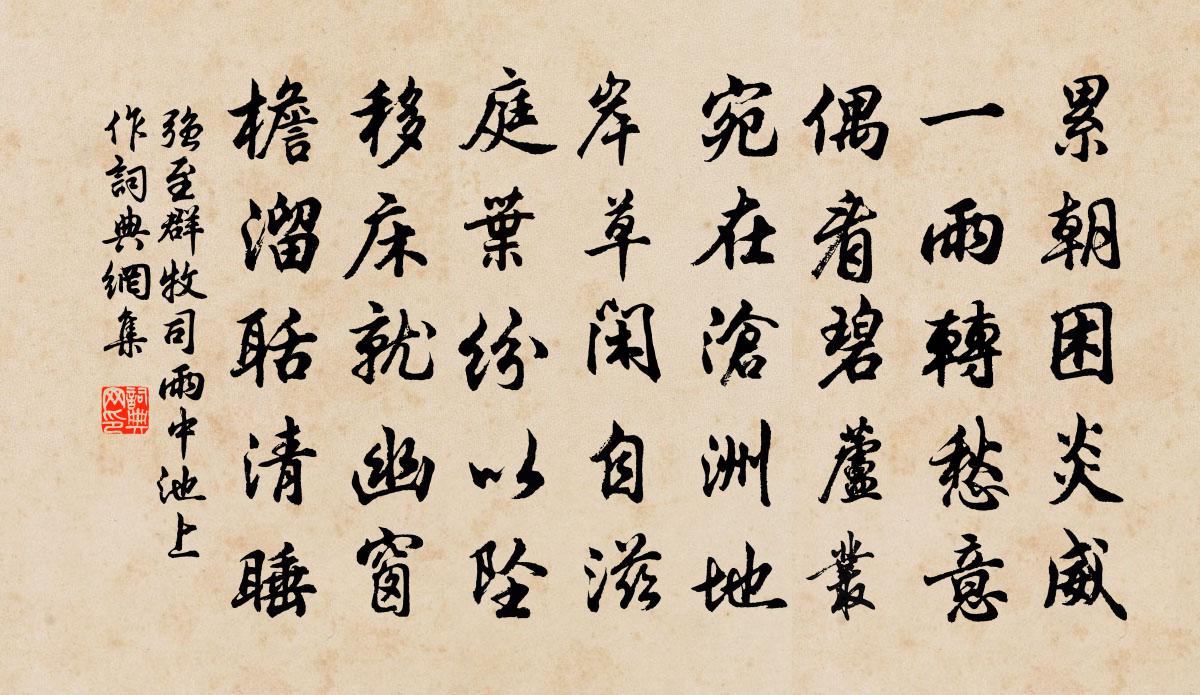 累朝困炎威
一雨轉愁意
偶看碧蘆叢
宛在滄洲地
岸草閑自滋
庭葉紛以坠
移床就幽窗
檐溜聒清睡
強至群牧司雨中池上
作詞典網集
詞典网印